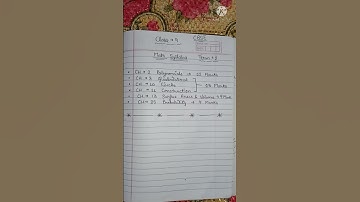 Class → 9 CBSE
Math Syllabus Term → 2
CH → 2 Polynomials → 12 Marks
CH → 8 Quadrilateral
CH → 10 Circle
CH → 11 Construction
CH → 13 Surface Areas & Volume → 9 Mark
CH → 15 Probability → Marks